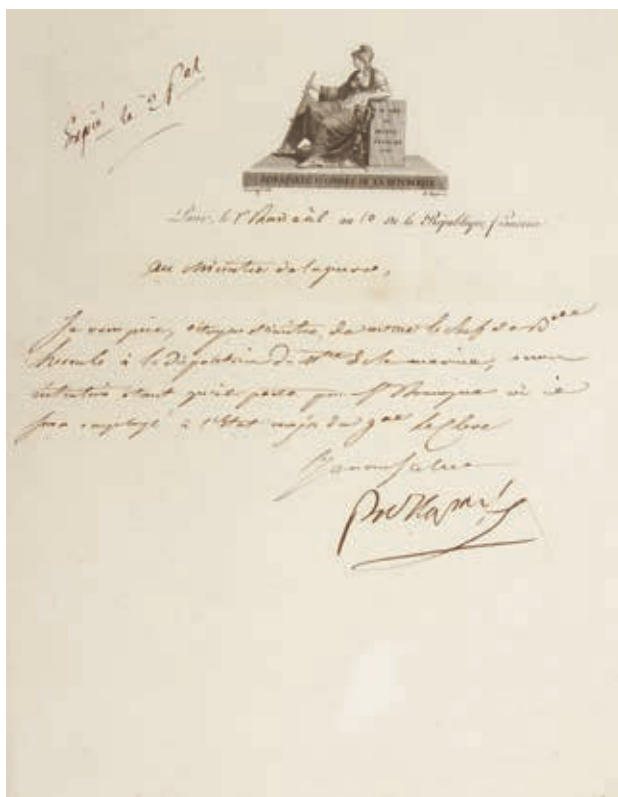 Expié le 2 Pal
AU NOM DU PEUPLE FRANÇAIS
BONAPARTE 1er CONSUL DE LA RÉPUBLIQUE
Paris, le 1er an 10 de la République française
au Ministre de la guerre,
Je vous prie, citoyen Ministre, de mettre le chef de Bde
à la disposition du Mtre de la marine, mon
intention étant qu'il passe par St Domingue où il
sera employé à l'Etat major du gal Le Clerc
Je vous salue